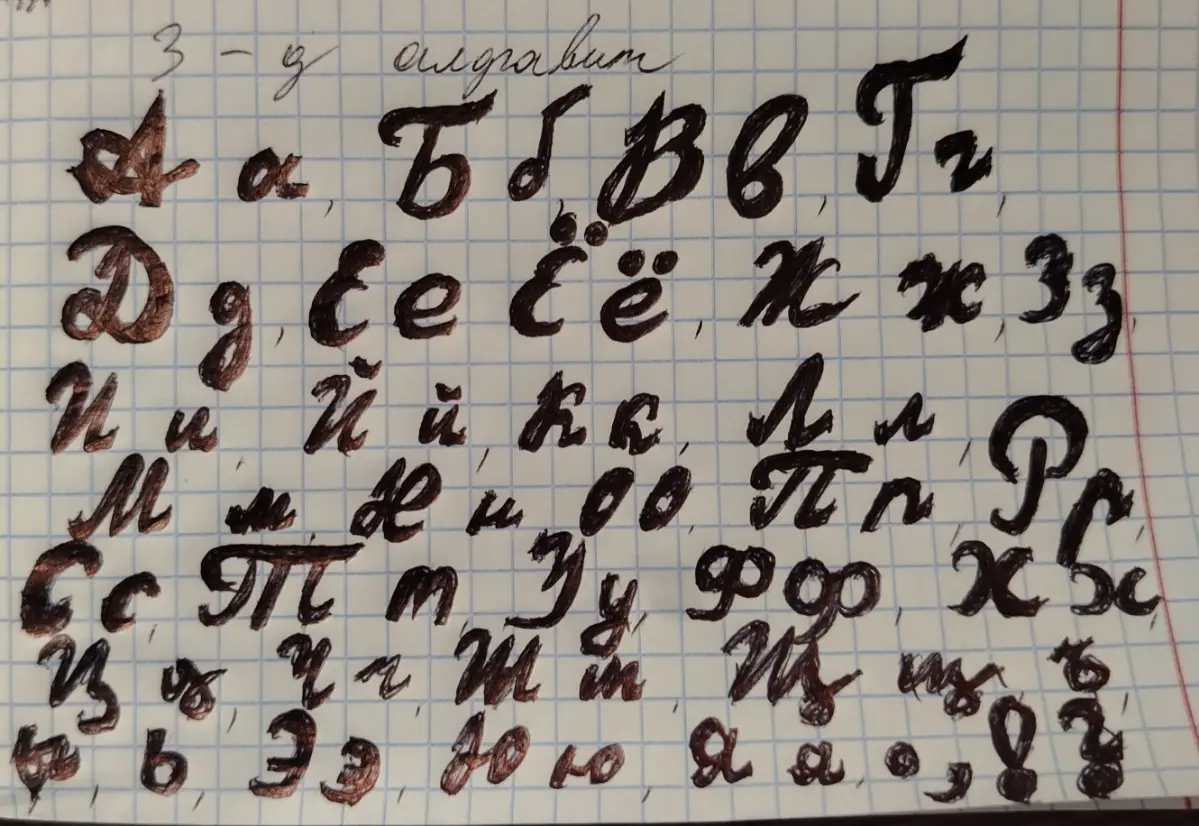 З - д алфавит
А а, Б б, В в, Г г,
Д д, Е е Ё ё, Ж ж, З з,
И и, Й й, К к, Л л,
М м, Н н, О о, П п, Р р,
С с, Т т, У у, Ф ф, Х х,
Ц ц, Ч ч, Ш ш, Щ щ, ъ,
ы, ь, Э э, Ю ю, Я я, . , ! ?